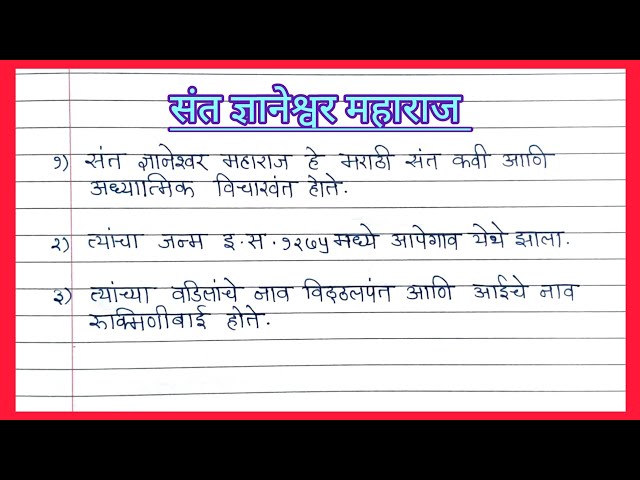 संत ज्ञानेश्वर महाराज
१) संत ज्ञानेश्वर महाराज हे मराठी संत कवी आणि
अध्यात्मिक विचारवंत होते.
२) त्यांचा जन्म इ.स.१२७५मध्ये आपेगाव येथे झाला.
३) त्यांच्या वडिलांचे नाव विठ्ठलपंत आणि आईचे नाव
रुक्मिणीबाई होते.